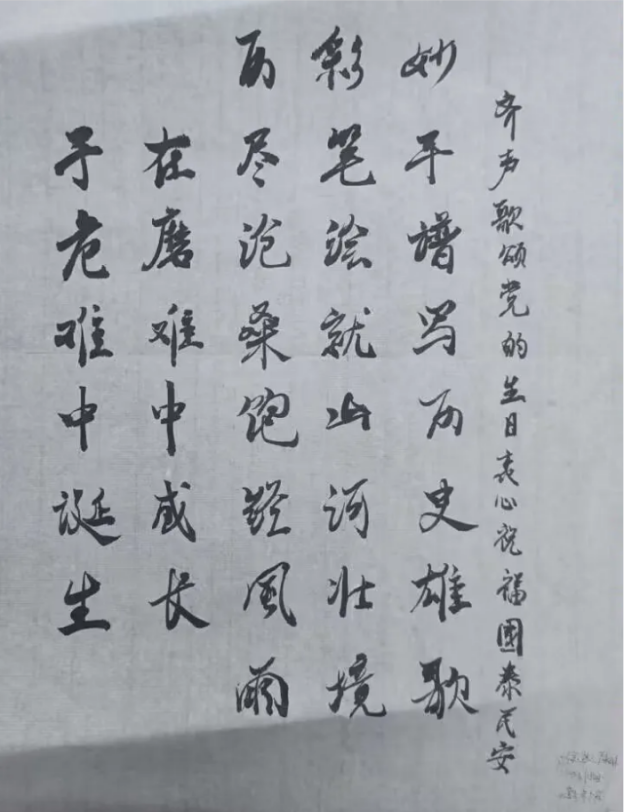 于危难中诞生
在磨难中成长
历尽沧桑饱经風雨
彩笔绘就山河壮境
妙手谱写历史雄歌
齐声歌颂党的生日衷心祝福國泰民安